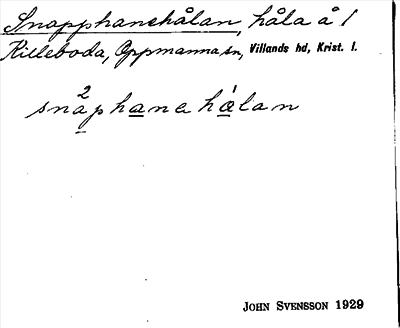 Snapphanehålan, håla å 1
Killeboda, Oppmanna sn, Villands hd, Krist. l.
snàphana hålan
JOHN SVENSSON 1929